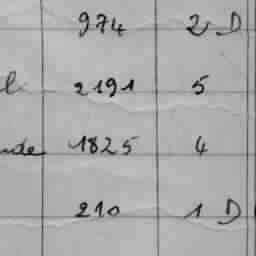 974 2 D
2191 5
1825 4
210 1 D